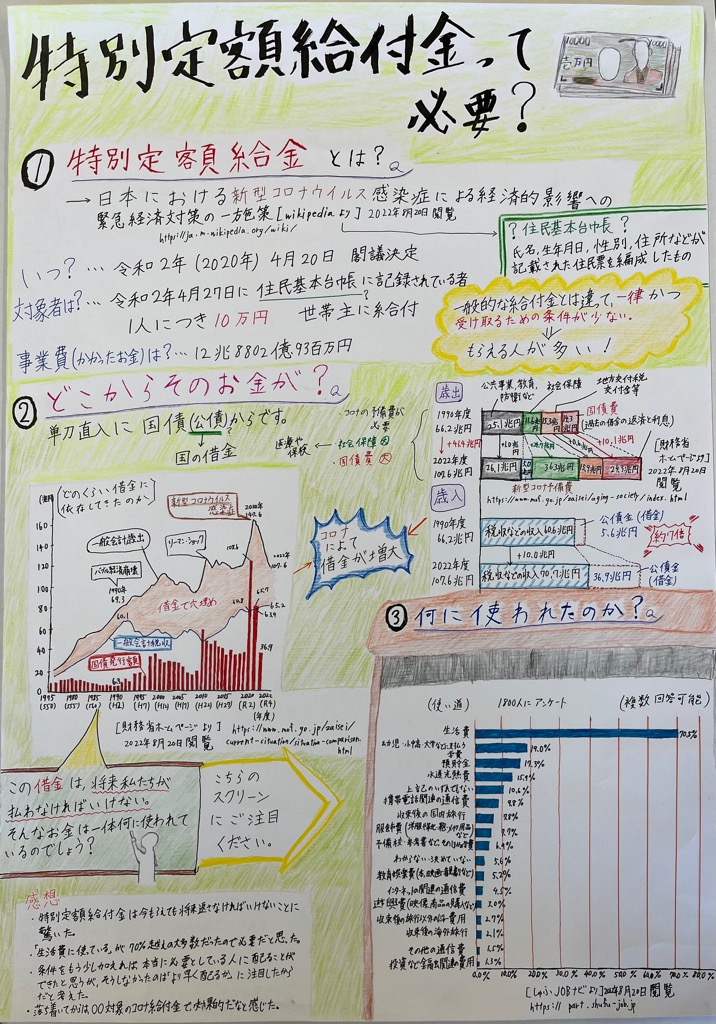 特別定額給付金って
必要？
10000
10000
壱万円
① 特別定額給金 とは？
→ 日本における新型コロナウイルス感染症による経済的影響への
緊急経済対策の一方施策 [wikipediaより] 2022年8月20日 閲覧
https://ja.m.wikipedia.org/wiki/
？住民基本台帳？
氏名,生年月日,性別,住所などが
記載された住民票を編成したもの
いつ？… 令和2年(2020年) 4月20日 閣議決定
対象者は？… 令和2年4月27日に 住民基本台帳に記録されている者
1人につき 10万円 世帯主に給付
事業費(かかったお金)は？… 12兆8802億93百万円
一般的な給付金とは違って、一律かつ
受け取るための条件が少ない。
もらえる人が多い！
② どこからそのお金が？
単刀直入に 国債(公債)からです。
国の借金
・コロナの予備費が
必要
社会保障費 大
・国債費 大
医療や
保険
歳出
公共事業,教育,
防衛など
社会保障
地方交付税
交付金等
国債費
(過去の借金の返済と利息)
1990年度
66.2兆円
25.1兆円
11.6兆円
15.3兆円
14.3兆円
+41.4兆円
+1.0兆円
+24.7兆円
+0.6兆円
+10.1兆円
2022年度
107.6兆円
26.1兆円
5.0兆円
36.3兆円
15.9兆円
24.3兆円
新型コロナ予備費
[財務省
ホームページより]
2022年8月20日
閲覧
https://www.mof.go.jp/zaisei/aging-society/index.html
歳入
1990年度
66.2兆円
税収などの収入60.6兆円
公債金(借金)
5.6兆円
約7倍
+10.0兆円
2022年度
107.6兆円
税収などの収入70.7兆円
36.9兆円
公債金
(借金)
コロナ
によって
借金が増大
(兆円)
どのくらい借金に
依存してきたのか
新型コロナウイルス
感染症
2020年
147.6
一般会計歳出
リーマン・ショック
バブル経済崩壊
1990年
69.3
60.1
2022年
107.6
借金で穴埋め
65.2
63.9
36.9
一般会計税収
国債発行額
160
140
120
100
80
60
40
20
0
1975 1980 1985 1990 1995 2000 2005 2010 2015 2020 2022
(年度)
[財務省ホームページより]
2022年8月20日 閲覧
https://www.mof.go.jp/zaisei/
current-situation/situation-comparison.
html
③ 何に使われたのか？
(使い道) 1800人にアンケート (複数回答可能)
生活費 70.5%
幼児・小中高・大学などに支払う
学費 19.0%
預貯金 17.3%
水道光熱費 15.9%
上記のいずれでもない 10.6%
携帯電話関連の通信費 9.8%
収束後の国内旅行 8.8%
服飾費 7.7%
予備校・参考書など,その他の学費 6.4%
わからない・決めていない 5.6%
5.2%
インターネット関連の通信費 4.5%
3.0%
収束後の旅行以外のレジャー費用 2.7%
収束後の海外旅行 2.1%
その他の通信費 1.5%
投資など金融関連の費用 1.3%
0.0% 10.0% 20.0% 30.0% 40.0% 50.0% 60.0% 70.0% 80.0%
[しゅふJOBナビより] 2022年8月20日 閲覧
https://part.shufu-job.jp
この借金は,将来私たちが
払わなければいけない。
そんなお金は一体何に使われて
いるのでしょう？
こちらの
スクリーン
にご注目
ください。
感想
・特別定額給付金は今もらえても将来返さなければいけないことに
驚いた。
・「生活費に使っている」が、70%越えの大多数だったので必要だと思った。
・条件をもう少し加えれば、本当に必要としている人に配ることが
できたと思うが、そうしなかったのは「より早く配るか」に注目したから
だと考えた。
・落ち着いてからは〇〇対象のコロナ給付金で、効果的だなと感じた。